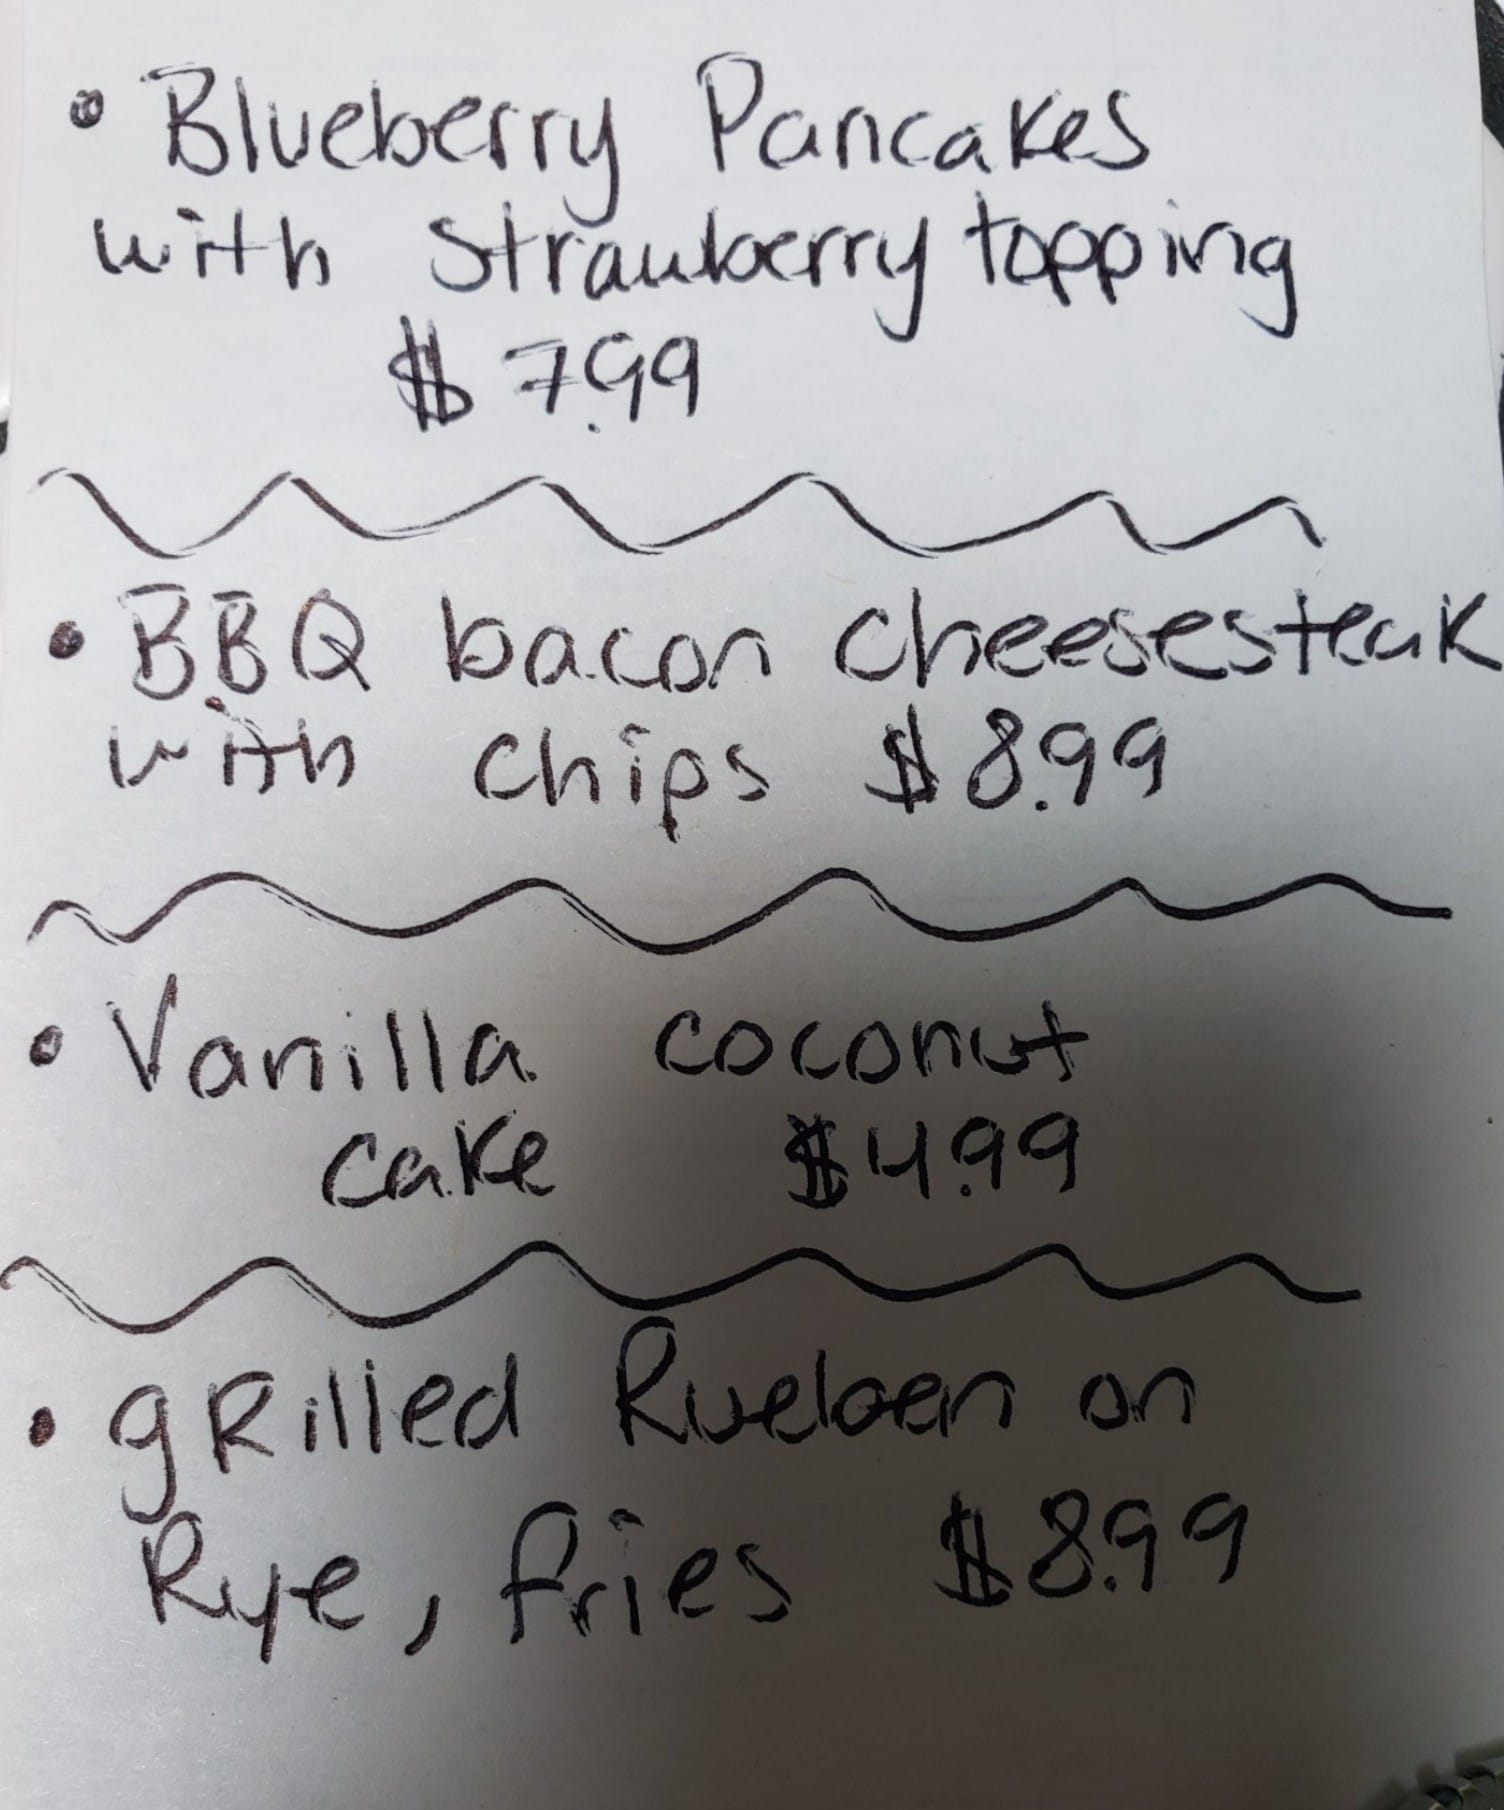 • Blueberry Pancakes
with Strawberry topping
$7.99
• BBQ bacon cheesesteak
with chips $8.99
• Vanilla coconut
cake $4.99
• gRilled Rueben on
Rye, fries $8.99